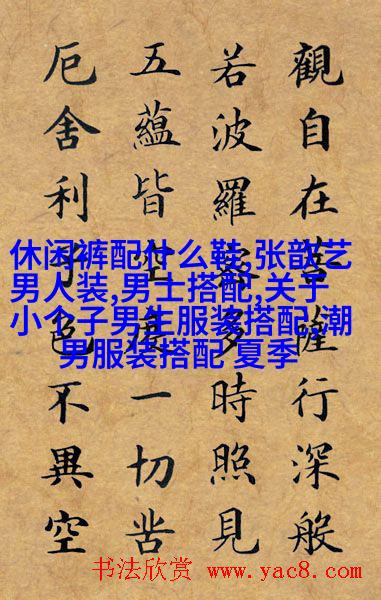 觀自在菩薩行深般
若波羅蜜多時照見
五蘊皆空度一切苦
厄舍利子色不異空
休闲裤配什么鞋,张歆艺
男人装,男士搭配,关于
小个子男生服装搭配,潮
男服装搭配 夏季
书法欣赏 www.yac8.com